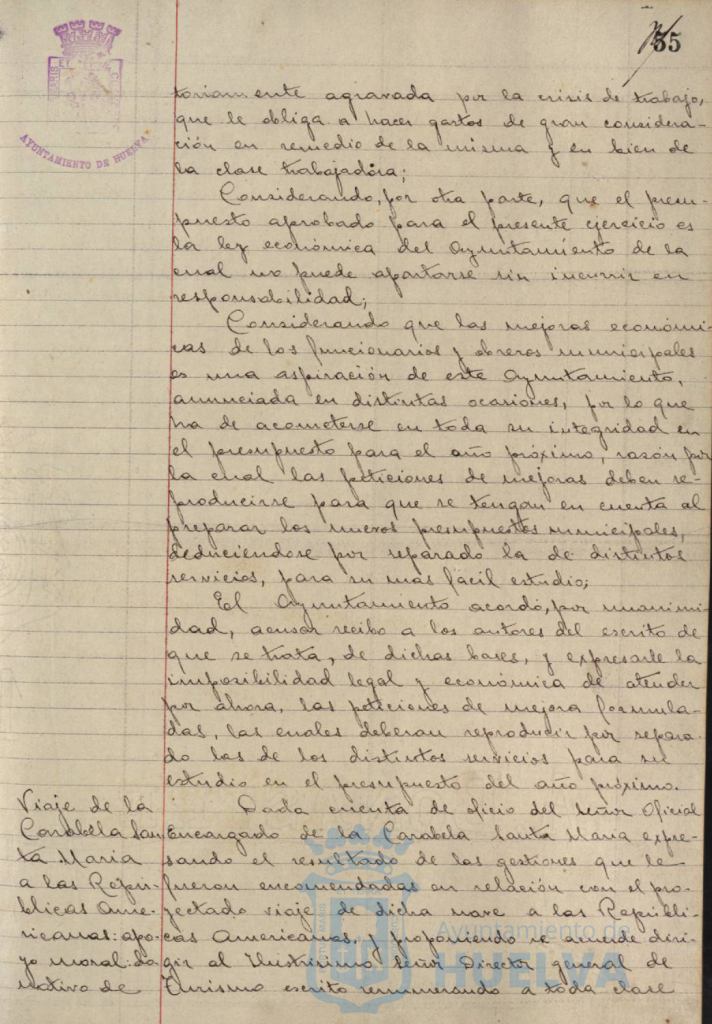 35
AYUNTAMIENTO DE HUELVA
toriamente agravada por la crisis de trabajo,
que le obliga a hacer gastos de gran considera-
ción en remedio de la misma y en bien de
la clase trabajadora;
Considerando, por otra parte, que el presu-
puesto aprobado para el presente ejercicio es
la ley económica del Ayuntamiento de la
cual no puede apartarse sin incurrir en
responsabilidad;
Considerando que las mejoras económi-
cas de los funcionarios y obreros municipales
es una aspiración de este Ayuntamiento,
anunciada en distintas ocasiones, por lo que
ha de acometerse en toda su integridad en
el presupuesto para el año próximo, razón por
la cual las peticiones de mejoras deben re-
producirse para que se tengan en cuenta al
preparar los nuevos presupuestos municipales,
deduciendose por separado la de distintos
servicios, para su mas facil estudio;
El Ayuntamiento acordó, por unanimi-
dad, acusar recibo a los autores del escrito de
que se trata, de dichas bases, y expresarle la
imposibilidad legal y económica de atender
por ahora, las peticiones de mejora formula-
das, las cuales deberan reproducir por separa-
do las de los distintos servicios para su
estudio en el presupuesto del año próximo.
Viaje de la
Carabela San-
ta Maria
a las Repú-
blicas Ame-
ricanas: apo-
yo moral: do-
nativo de
Dada cuenta de oficio del señor Oficial
Encargado de la Carabela Santa Maria expre-
sando el resultado de las gestiones que le
fueron encomendadas en relación con el pro-
yectado viaje de dicha nave a las Repúbli-
cas Americanas, y proponiendo se acuerde diri-
gir al Ilustrisimo señor Director general de
Turismo escrito remunerando a toda clase
Ayuntamiento de
HUELVA